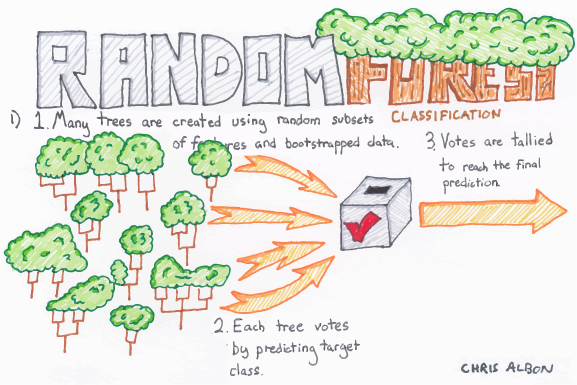 RANDOM FOREST
CLASSIFICATION
1) 1. Many trees are created using random subsets
of features and bootstrapped data.
2. Each tree votes
by predicting target
class.
3. Votes are tallied
to reach the final
prediction
CHRIS ALBON